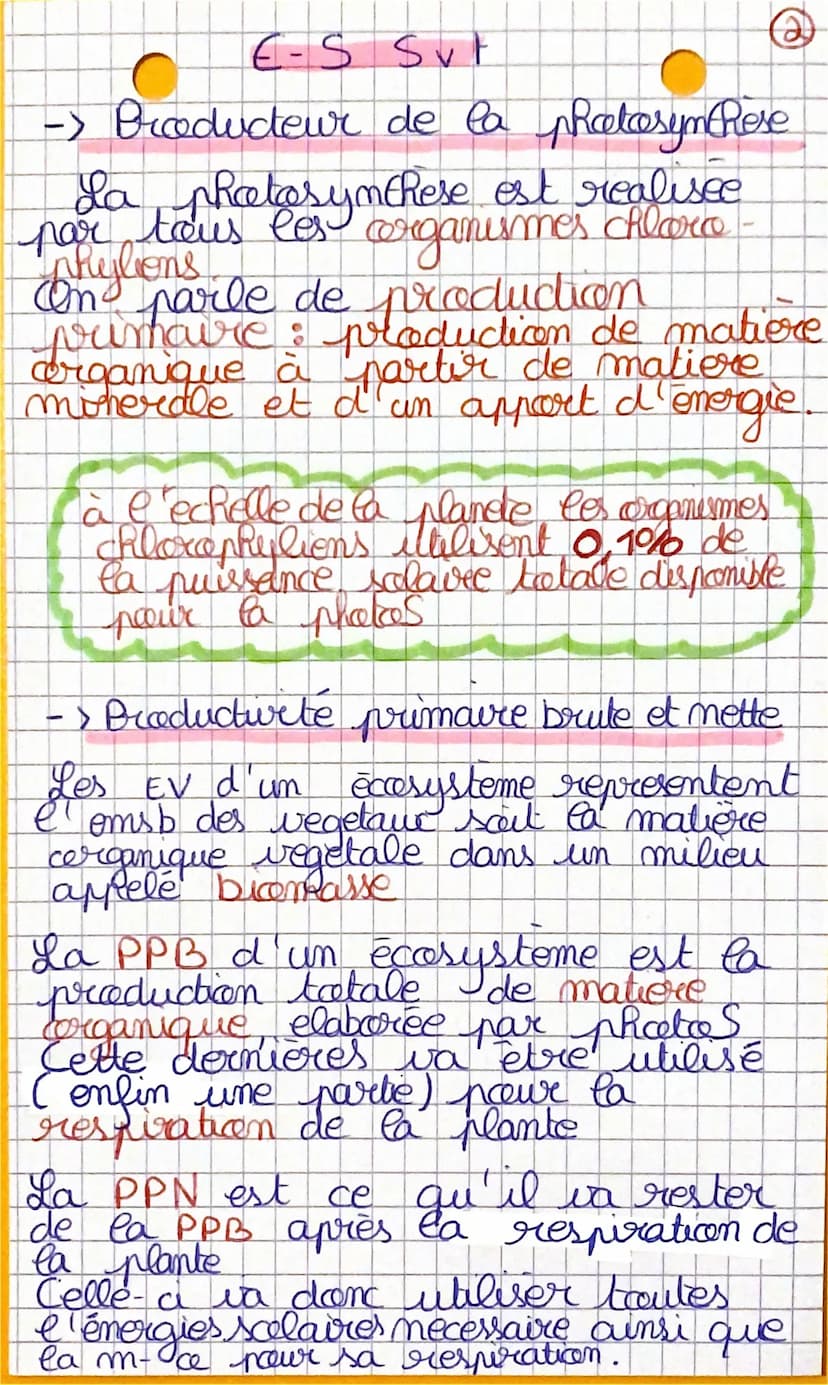 ②
E-S Svt
-> Producteur de la photosynthèse
La photosynthèse est realisée
par tous les organismes chloro-
phyliens
On parle de production
primaire : production de matière
organique à partir de matiere
minerale et d'un apport d'énergie.
à l'echelle de la planete les organismes
chlorophyliens utilisent 0,1% de
la puissance solaire totale disponible
pour la photoS
-> Productivité primaire brute et nette
Les EV d'un écosystème representent
l'emsb des vegetaux soit la matière
organique vegetale dans un milieu
appelé biomasse
La PPB d'un écosystème est la
production totale de matiere
organique elaborée par photoS
Cette dernières va être utilisé
(enfin une partie) pour la
respiration de la plante
La PPN est ce qu'il va rester
de la PPB après la respiration de
la plante
Celle-ci va donc utiliser toutes
l'énergies solaires necessaire ainsi que
la m-ce pour sa respiration.